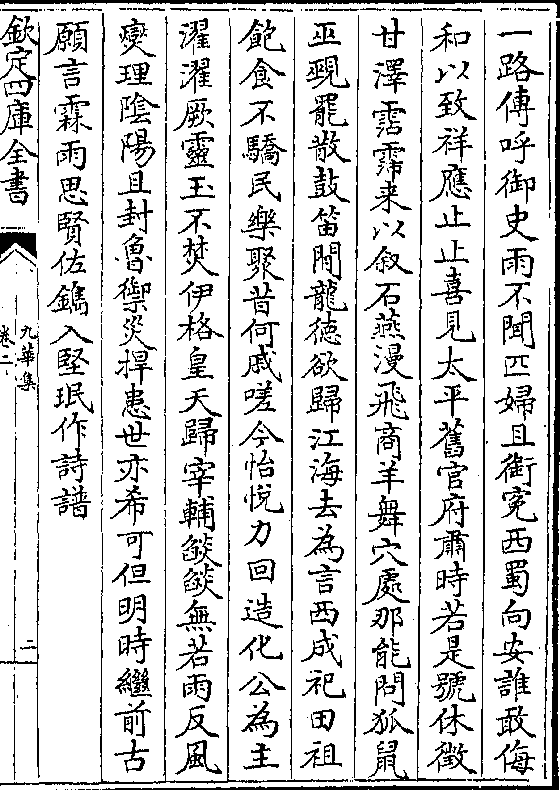 一路傳呼御史雨不聞匹婦且銜寃西蜀向安誰敢侮
和以致祥應止止喜見太平舊官府肅時若是號休徴
甘澤霑霈来以叙石燕漫飛商羊舞穴處那能問狐鼠
巫覡罷散鼓笛閒龍徳欲歸江海去為言西成祀田祖
飽食不驕民樂聚昔何戚嗟今怡悅力回造化公為主
濯濯厥靈玉不焚伊格皇天歸宰輔燄燄無若雨反風
燮理陰陽且封魯禦災捍患世亦希可但明時繼前古
願言霖雨思賢佐鐫入堅珉作詩譜
欽定四庫全書
九華集
卷二
二